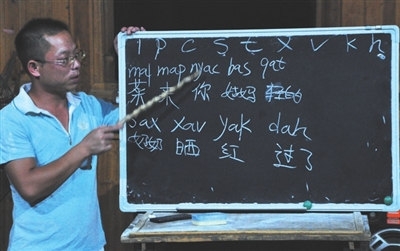 l p c s t x v k h
mal map nyac bas qat
菜 来 你 姑妈 轻的
sax xav yak dah
奶奶 晒 红 过了